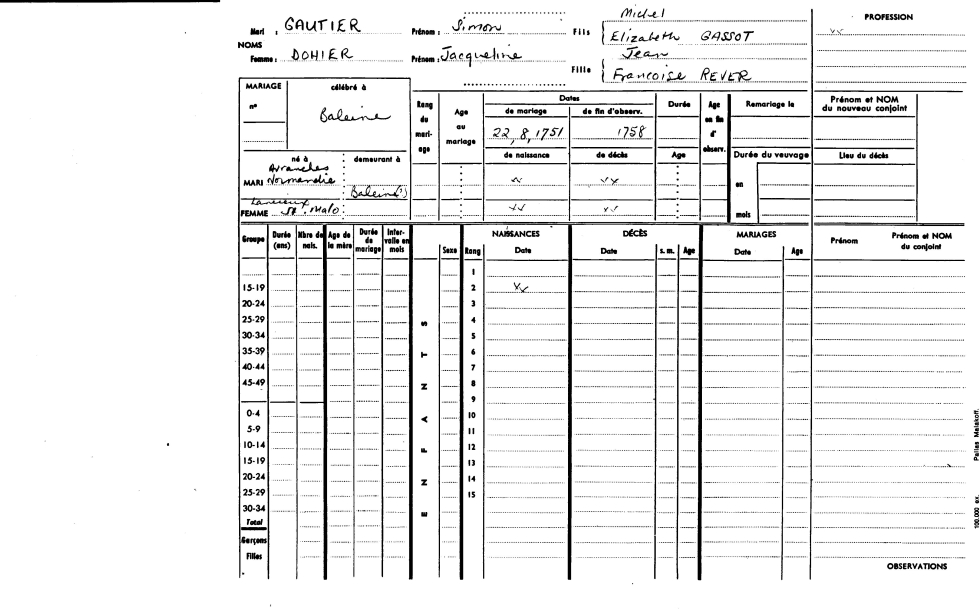 Michel
PROFESSION
Mari : GAUTIER Prénom : Simon Fils Elizabeth GASSOT
NOMS
Jean
Femme : DOHIER Prénom : Jacqueline
Fille Francoise REVER
MARIAGE célébré à
n° Baleine
Rang du mari-age
Age au mariage
Dates
de mariage de fin d'observ.
22, 8, 1751 1758
Durée
Age en fin d' observ.
Remariage le
Prénom et NOM du nouveau conjoint
né à demeurant à
de naissance de décès Age
Durée du veuvage
Lieu du décès
Avranches
MARI Normandie Baleine(?)
en
Lancieux
FEMME St. Malo
mois
Groupe Durée (ans) Nbre de nais. Age de la mère Durée de mariage Inter-valle en mois
Sexe Rang
NAISSANCES Date
DÉCÈS Date s. m. Age
MARIAGES Date Age
Prénom Prénom et NOM du conjoint
1
15-19 2
20-24 3
25-29 S 4
30-34 5
35-39 T 6
40-44 7
45-49 N 8
9
0-4 A 10
5-9 11
10-14 F 12
15-19 13
20-24 N 14
25-29 15
30-34 E
Total
Garçons
Filles
OBSERVATIONS
100,000 ex. Pallas Malakoff.